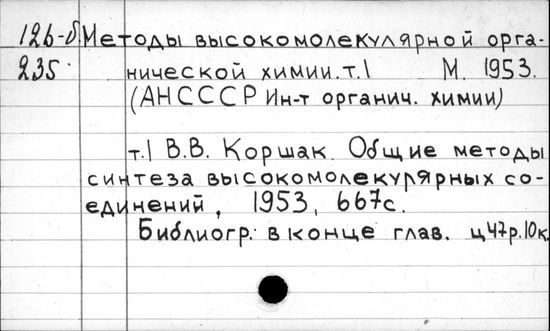 126-б. Методы высокомолекулярной орга-
235 нической химии. т.1 М. 1953.
(АН СССР Ин-т органич. химии)
т.1 В.В. Коршак. Общие методы
синтеза высокомолекулярных со-
единений, 1953, 667с.
Библиогр. в конце глав. ц47р.10к.